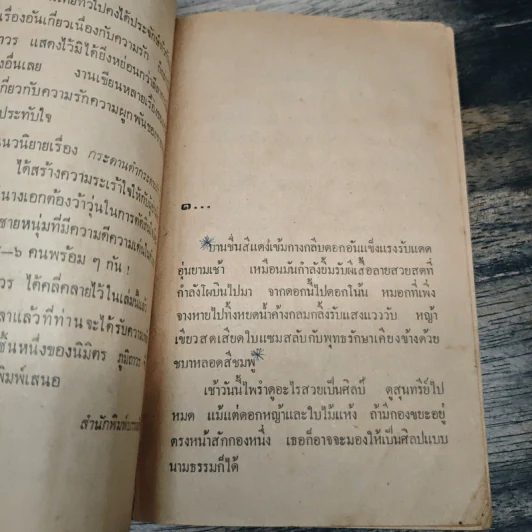 เรื่องอันเกี่ยวเนื่องกับความรัก
แสดงไว้มิได้ยิ่งหย่อนกว่า
งอื่นเลย งานเขียนหลายเรื่อง
กี่ยวกับความรักความผูกพันของ
ประทับใจ
นวนิยายเรื่อง กระดานดำ
ได้สร้างความระเร้าใจให้กับ
นางเอกต้องว้าวุ่นในการตัดสิน
ชายหนุ่มที่มีความดีความเด่น
–๖ คนพร้อม ๆ กัน !
วร ได้คลี่คลายไว้ในเล่มนี้แล้ว
ลาแล้วที่ท่านจะได้รับความ
ชิ้นหนึ่งของนิมิตร ภูมิถาวร
พิมพ์เสนอ
สำนักพิมพ์
๑...
บานชื่นสีแดงเข้มกางกลีบดอกอันแข็งแรงรับแดด
อุ่นยามเช้า เหมือนมันกำลังยิ้มรับผีเสื้อลายสวยสดที่
กำลังโผบินไปมา จากดอกนี้ไปดอกโน้น หมอกที่เพิ่ง
จางหายไปทิ้งหยดน้ำค้างกลมกลิ้งรับแสงแวววับ หญ้า
เขียวสดเสียดใบแซมสลับกับพุทธรักษาเคียงข้างด้วย
ชบาหลอดสีชมพู
เช้าวันนี้ไพรำดูอะไรสวยเป็นศิลป์ ดูสุนทรีย์ไป
หมด แม้แต่ดอกหญ้าและใบไม้แห้ง ถ้ามีกองขยะอยู่
ตรงหน้าสักกองหนึ่ง เธอก็อาจจะมองให้เป็นศิลปแบบ
นามธรรมก็ได้